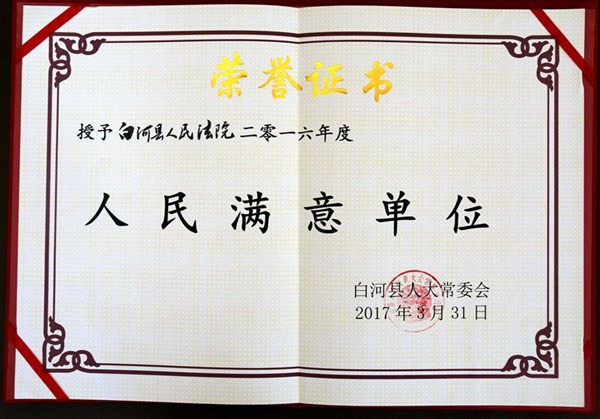 荣誉证书
授予白河县人民法院二零一六年度
人民满意单位
白河县人大常委会
2017年3月31日